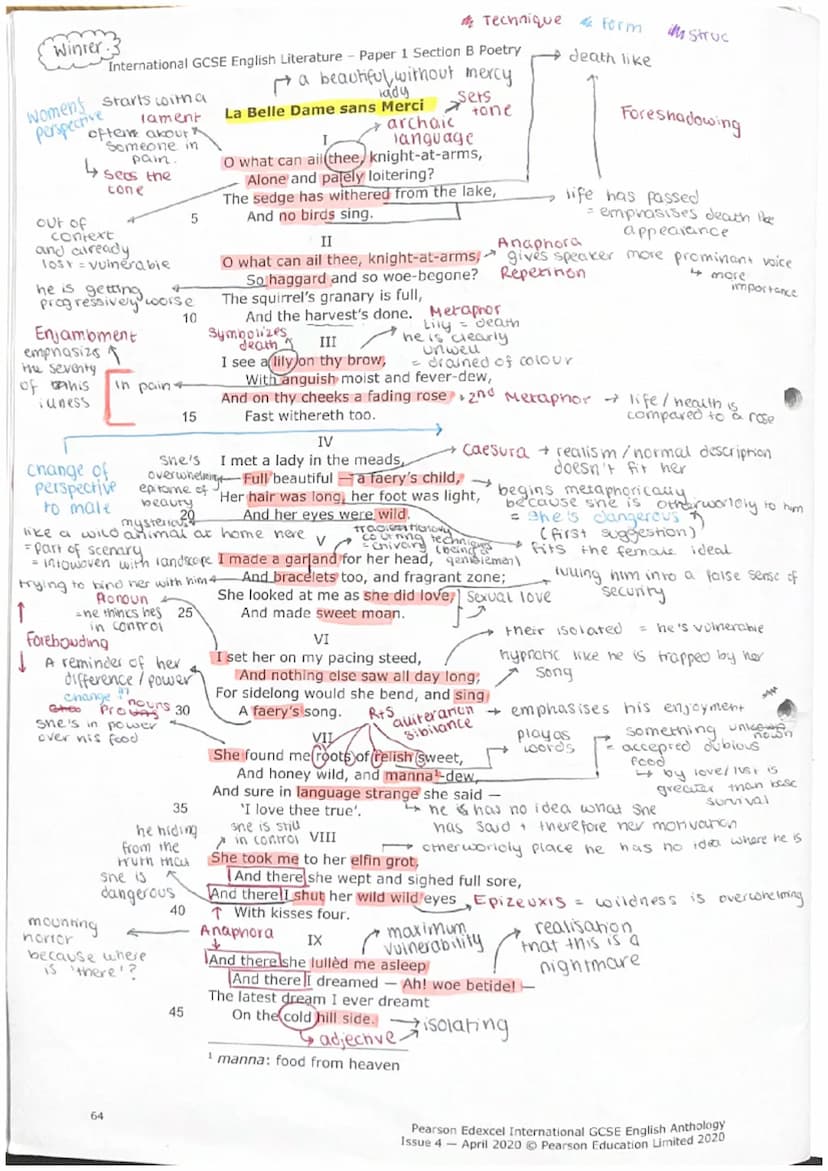 Technique Form Struc
Winter.
International GCSE English Literature – Paper 1 Section B Poetry
a beautiful lady without mercy
La Belle Dame sans Merci
sets tone
archaic language
death like
Foreshadowing
Womens perspective
starts with a lament
often about someone in pain.
sets the tone
I
O what can ail thee, knight-at-arms,
Alone and palely loitering?
The sedge has withered from the lake,
5 And no birds sing.
life has passed
= emphasises death like appearance
out of context and already lost = vulnerable
II
O what can ail thee, knight-at-arms,
So haggard and so woe-begone?
The squirrel's granary is full,
10 And the harvest's done.
Anaphora
gives speaker more prominent voice
Repetition
more importance
he is getting progressively worse
Metaphor
Lily = death
he is clearly unwell
= drained of colour
Symbolizes death
Enjambment
emphasize the severity of this illness
in pain
III
I see a lily on thy brow,
With anguish moist and fever-dew,
And on thy cheeks a fading rose
15 Fast withereth too.
2nd Metaphor → life/health is compared to a rose
change of perspective to male
IV
I met a lady in the meads,
Full beautiful — a faery's child,
Her hair was long, her foot was light,
20 And her eyes were wild.
she's overwhelming epitome of beauty
mysterious
Caesura → realism/normal description doesn't fit her
begins metaphorically because she is otherworldly to him
= she is dangerous
(first suggestion)
fits the female ideal
like a wild animal at home here
= part of scenary
= intowoven with landscape
trying to bind her with him
traditionally courting technique
= chivalry (being a gentleman)
V
I made a garland for her head,
And bracelets too, and fragrant zone;
She looked at me as she did love,
25 And made sweet moan.
lulling him into a false sense of security
Sexual love
Pronoun
= he thinks hes in control
Forebouding
VI
I set her on my pacing steed,
And nothing else saw all day long;
For sidelong would she bend, and sing
30 A faery's song.
their isolated = he's vulnerable
hypnotic like he is trapped by her song
A reminder of her difference/power
change in pronouns
she's in power over his food
R+S alliteration sibilance → emphasises his enjoyment
VII
She found me roots of relish sweet,
And honey wild, and manna¹-dew,
And sure in language strange she said —
35 'I love thee true'.
something unknown
= accepted dubious food
by love/lust is greater than base survival
he has no idea what she has said + therefore her motivation
she is still in control
he hiding from the truth that she is dangerous
VIII
She took me to her elfin grot,
And there she wept and sighed full sore,
And there I shut her wild wild eyes
40 With kisses four.
otherworldly place he has no idea where he is
Epizeuxis = wildness is overwhelming
Anaphora
mounting horror because where is 'there'?
IX
And there she lullèd me asleep
And there I dreamed — Ah! woe betide! —
The latest dream I ever dreamt
45 On the cold hill side.
maximum vulnerability
realisation that this is a nightmare
isolating
adjective
¹ manna: food from heaven
64
Pearson Edexcel International GCSE English Anthology
Issue 4 — April 2020 © Pearson Education Limited 2020